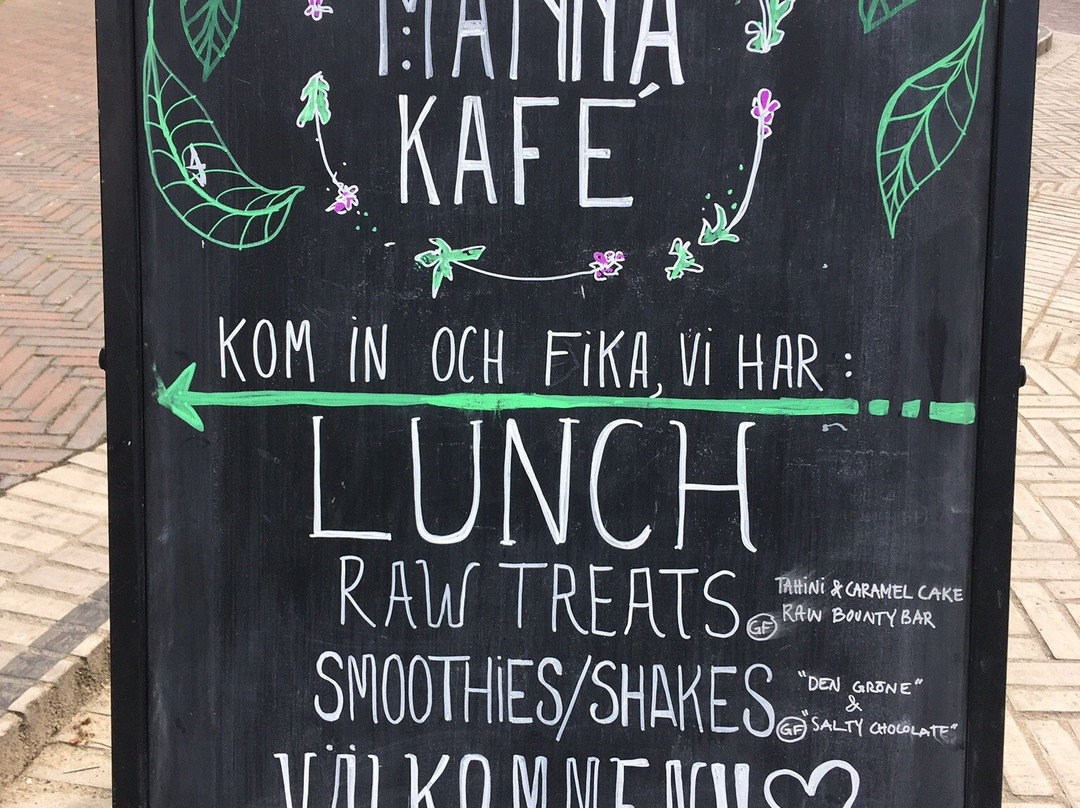 MANNA
KAFÉ
KOM IN OCH FIKA, VI HAR:
LUNCH
RAW TREATS
GF
TAHINI & CARAMEL CAKE
RAW BOUNTY BAR
SMOOTHIES/SHAKES
GF
"DEN GRÖNE"
&
"SALTY CHOCOLATE"
VÄLKOMMEN!!